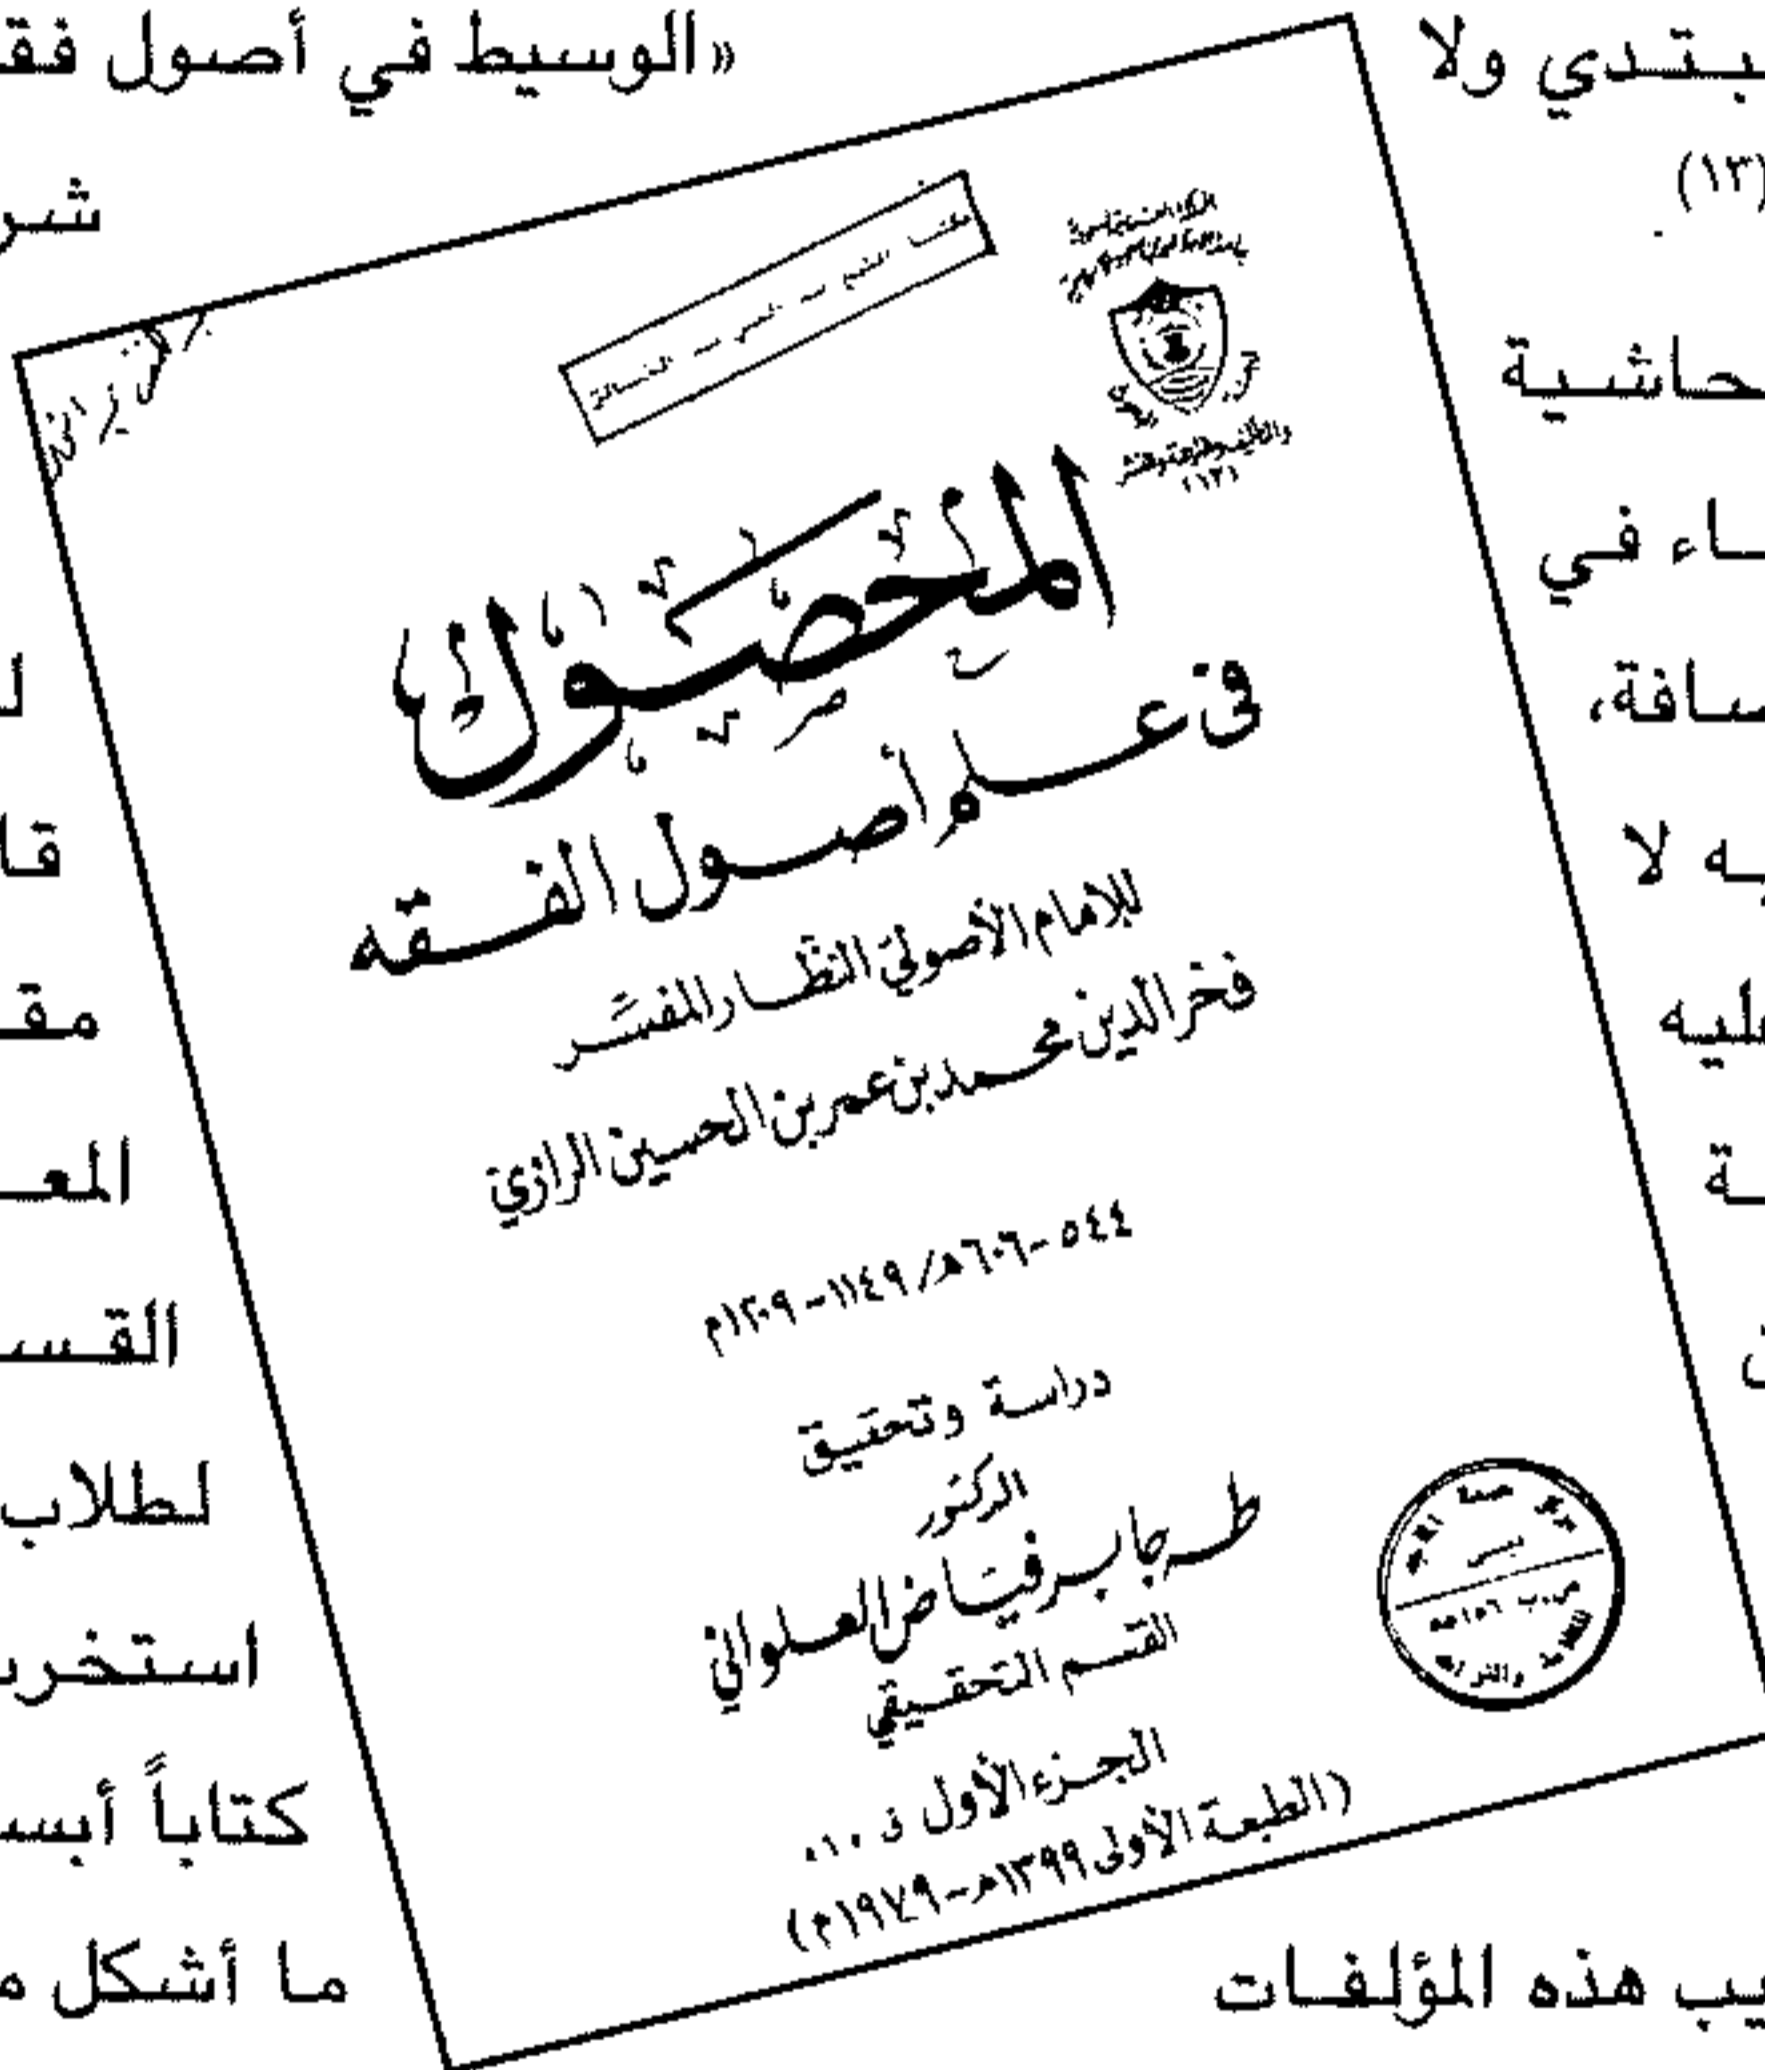 ـبـتـدي ولا
(١٣)
ـحـاشـيـة
ـاء في
ـسـافة،
ـيـه لا
ـليـه
ـة
ـيب هذه المؤلفـات
المحصول
في علم أصول الفقه
للإمام الأصولي النظار المفسر
فخر الدين محمد بن عمر بن الحسين الرازي
٥٤٤-٦٠٦هـ/١١٤٩-١٢٠٩م
دراسة وتحقيق
الدكتور
طه جابر فياض العلواني
القسم التحقيقي
الجزء الأول
(الطبعة الأولى ١٣٩٩هـ-١٩٧٩م)
«الوسيط في أصول فقـ
شر
لـ
قا
مقـ
المعـ
القـسـ
لطلاب
استخر
كتاباً أبسـ
ما أشكل مـ